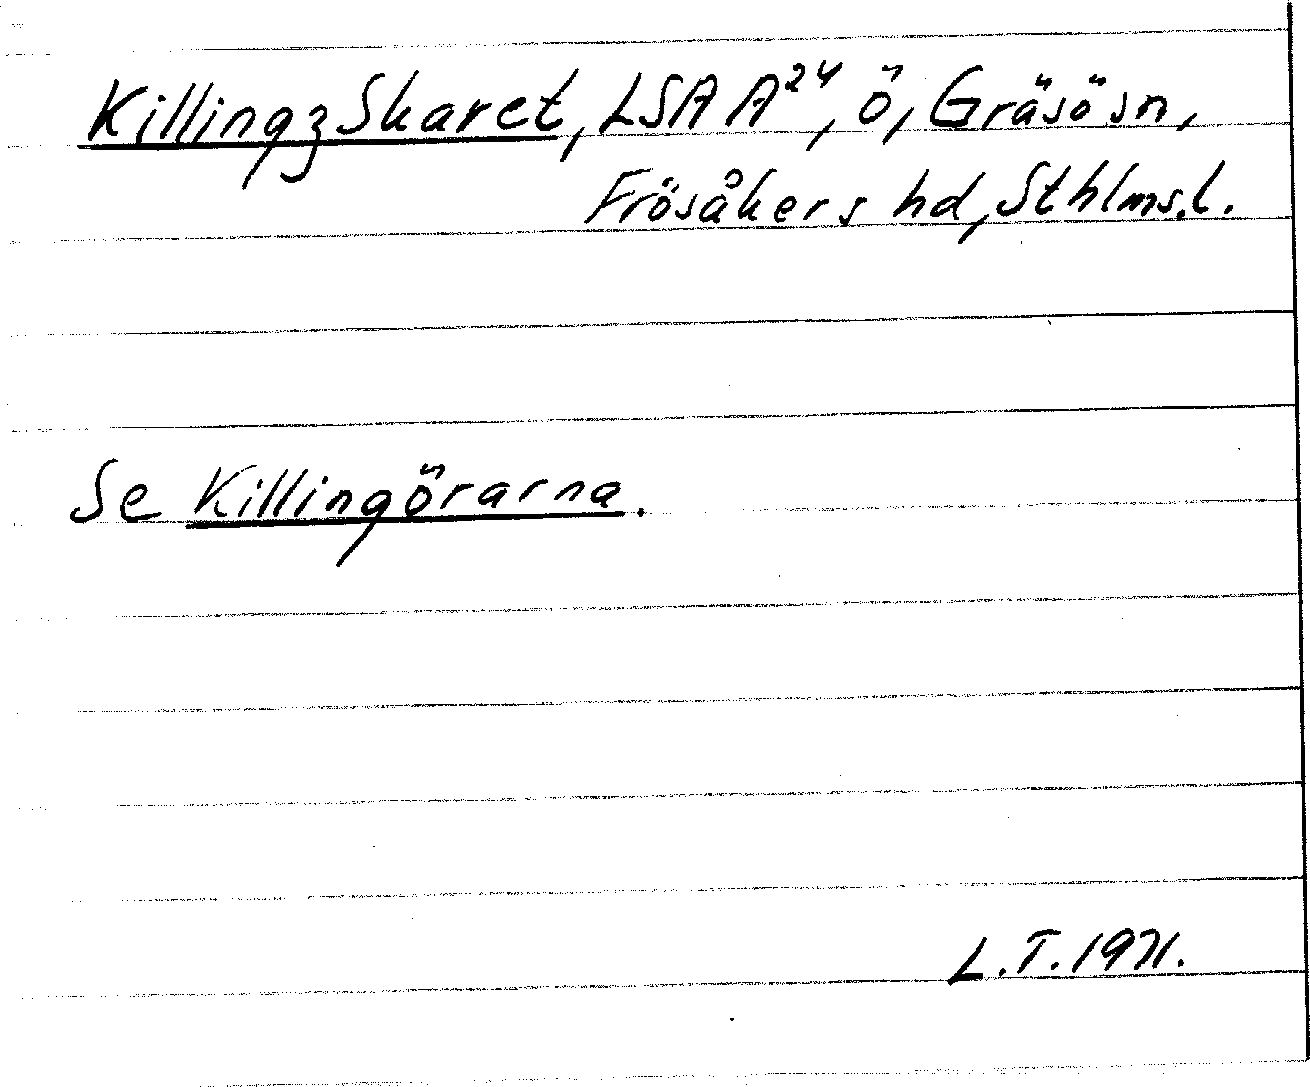 Killingz Skaret, LSA A²⁴, ö, Gräsö sn,
Frösåkers hd, Sthlms. l.
Se Killingörarna.
L.T. 1971.